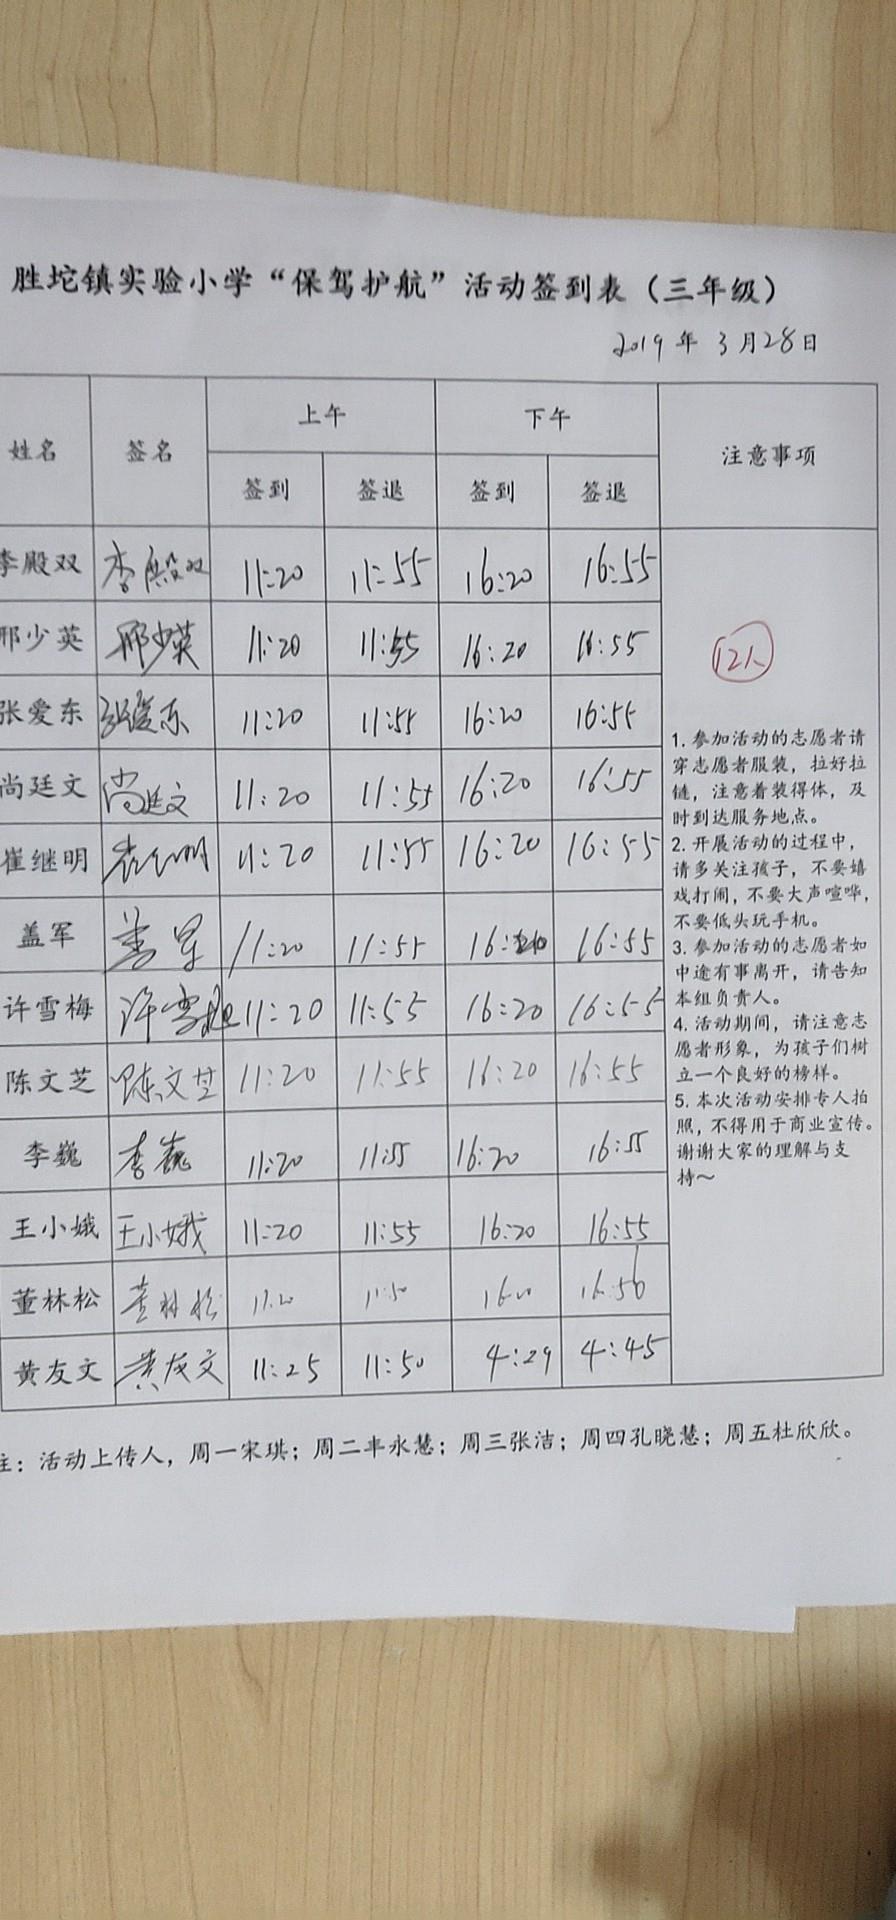 胜坨镇实验小学“保驾护航”活动签到表（三年级）
2019年3月28日
姓名 签名 上午 下午 注意事项
签到 签退 签到 签退
李殿双 李殿双 11:20 11:55 16:20 16:55
邢少英 邢少英 11:20 11:55 16:20 16:55
张爱东 张爱东 11:20 11:55 16:20 16:55
尚廷文 尚廷文 11:20 11:55 16:20 16:55
崔继明 崔继明 11:20 11:55 16:20 16:55
盖军 盖军 11:20 11:55 16:20 16:55
许雪梅 许雪梅 11:20 11:55 16:20 16:55
陈文芝 陈文芝 11:20 11:55 16:20 16:55
李巍 李巍 11:20 11:55 16:20 16:55
王小娥 王小娥 11:20 11:55 16:20 16:55
董林松 董林松 11:20 11:50 16:56
黄友文 黄友文 11:25 11:50 4:29 4:45
12人
1. 参加活动的志愿者请
穿志愿者服装，拉好拉
链，注意着装得体，及
时到达服务地点。
2. 开展活动的过程中，
请多关注孩子，不要嬉
戏打闹，不要大声喧哗，
不要低头玩手机。
3. 参加活动的志愿者如
中途有事离开，请告知
本组负责人。
4. 活动期间，请注意志
愿者形象，为孩子们树
立一个良好的榜样。
5. 本次活动安排专人拍
照，不得用于商业宣传。
谢谢大家的理解与支
持～
注：活动上传人，周一宋琪；周二丰永慧；周三张洁；周四孔晓慧；周五杜欣欣。